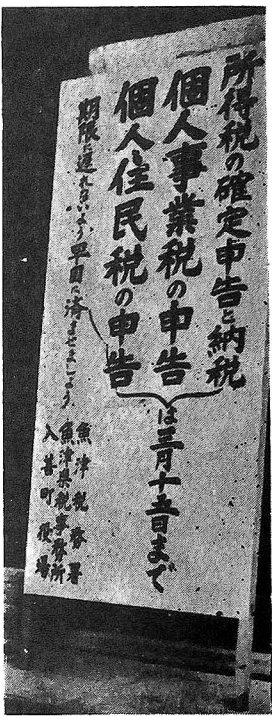 所得税の確定申告と納税
個人事業税の申告
個人住民税の申告
は三月十五日まで
期限に遅れないよう早目に済ませましょう
魚津税務署
魚津県税事務所
入善町役場